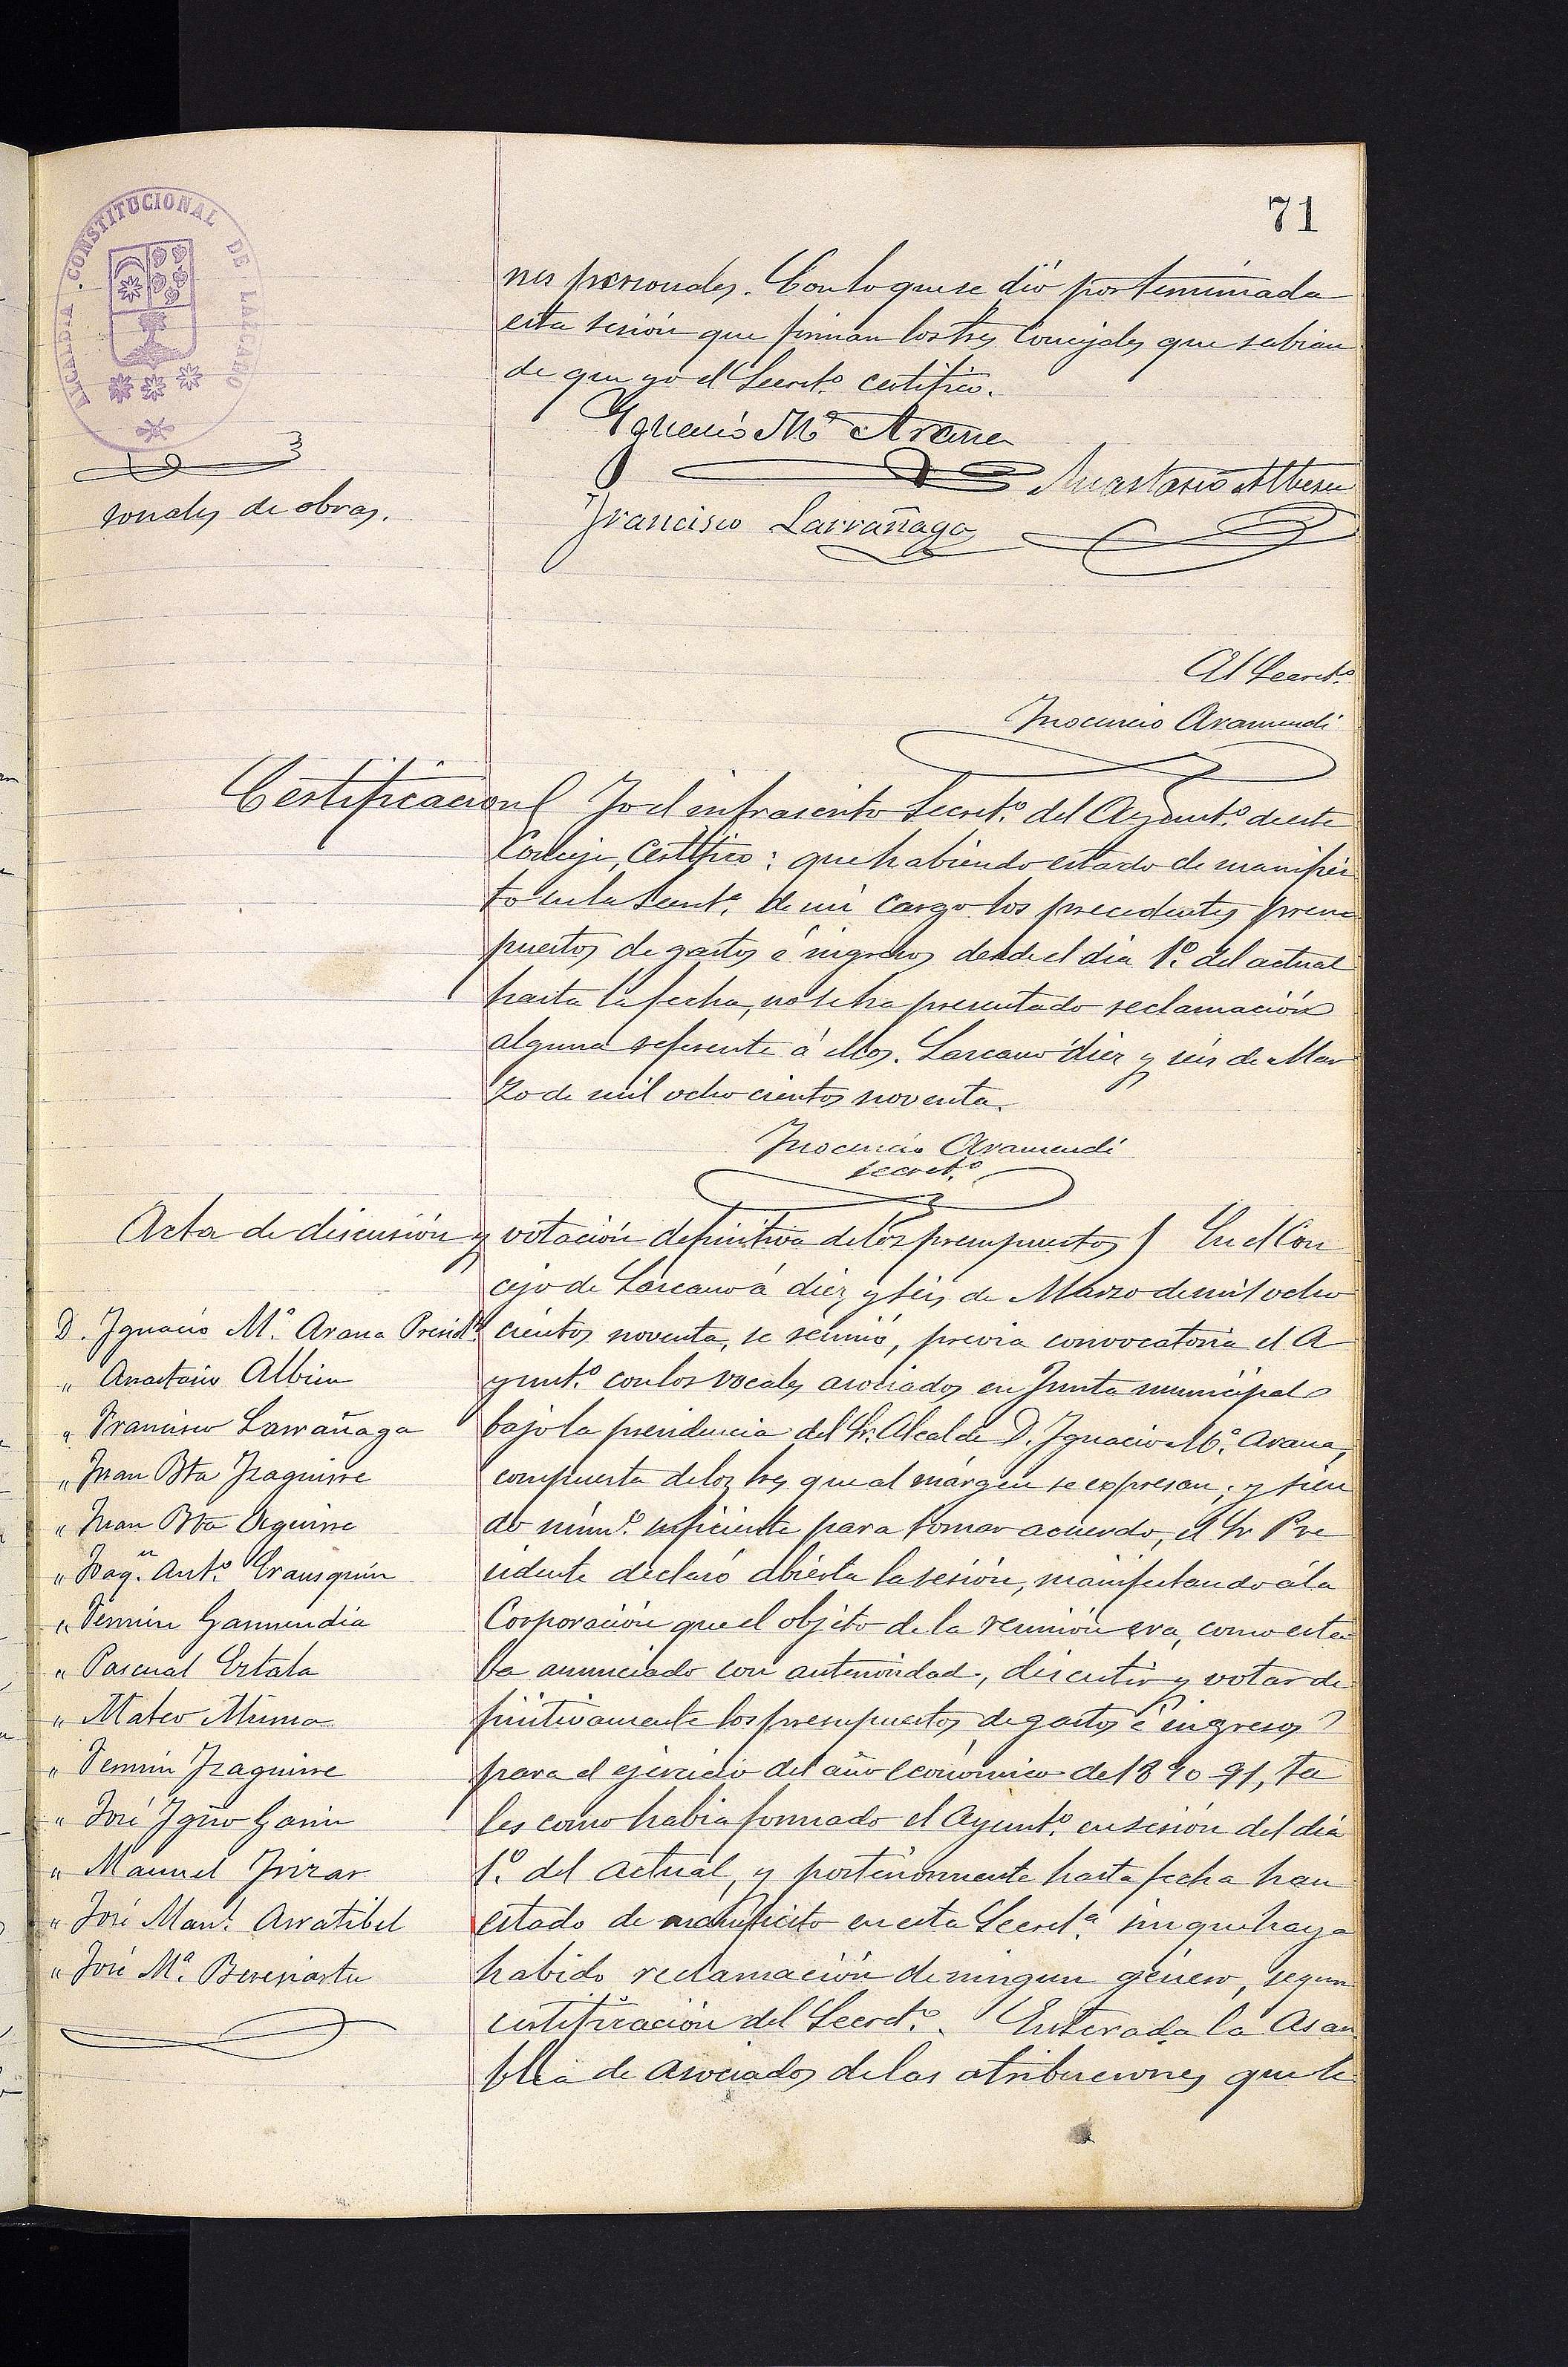 71
ALCALDIA CONSTITUCIONAL DE LAZCANO
nes personales. Con lo que se dió por terminada
esta sesión que firman los tres Concejales que sabian
de que yo el Secret.º certifico.
Ygnacio Mª Arana
Anastasio Albisu
sonales de obras.
Francisco Larrañaga
El Secret.º
Inocencio Aramendi
Certificacion
Yo el infrascrito Secret.º del Ayunt.º de este
Concejo, Certifico: que habiendo estado de manifies
to en la Secret.ª de mi cargo los precedentes presu
puestos de gastos é ingresos desde el dia 1.º del actual
hasta la fecha, no se ha presentado reclamación
alguna referente á ellos. Lazcano diez y seis de Mar
zo de mil ocho cientos noventa.
Inocencio Aramendi
secret.º
Acta de discusión y votación definitiva de los presupuestos) En el Con
cejo de Lazcano á diez y seis de Marzo de mil ocho
cientos noventa, se reunió, previa convocatoria el A
yunt.º con los vocales asociados en Junta municipal
bajo la presidencia del Sr. Alcalde D. Ignacio M.ª Arana,
compuesta de los tres que al márgen se expresan; y sien
do núm.º suficiente para tomar acuerdo, el Sr Pre
sidente declaró abierta la sesión, manifestando á la
Corporación que el objeto de la reunión era, como esta
ba anunciado con anterioridad, discutir y votar de
finitivamente los presupuestos de gastos é ingresos
para el ejercicio del año económico de 1890-91, ta
les como habia formado el Ayunt.º en sesión del dia
1.º del actual, y posteriormente hasta fecha han
estado de manifiesto en esta Secret.ª sin que haya
habido reclamación de ningun género, segun
certificación del Secret.º. Enterada la Asam
blea de asociados de las atribuciones que le
D. Ignacio M.ª Arana Presid.te
" Anastasio Albisu
" Francisco Larrañaga
" Juan Bta Izaguirre
" Juan Bta Aguirre
" Joaq.n Ant.º Erausquin
" Fermin Garmendia
" Pascual Estala
" Mateo Múxica
" Fermin Izaguirre
" José Igno Garin
" Manuel Irizar
" José Man.l Arratibel
" José M.ª Beresiartu